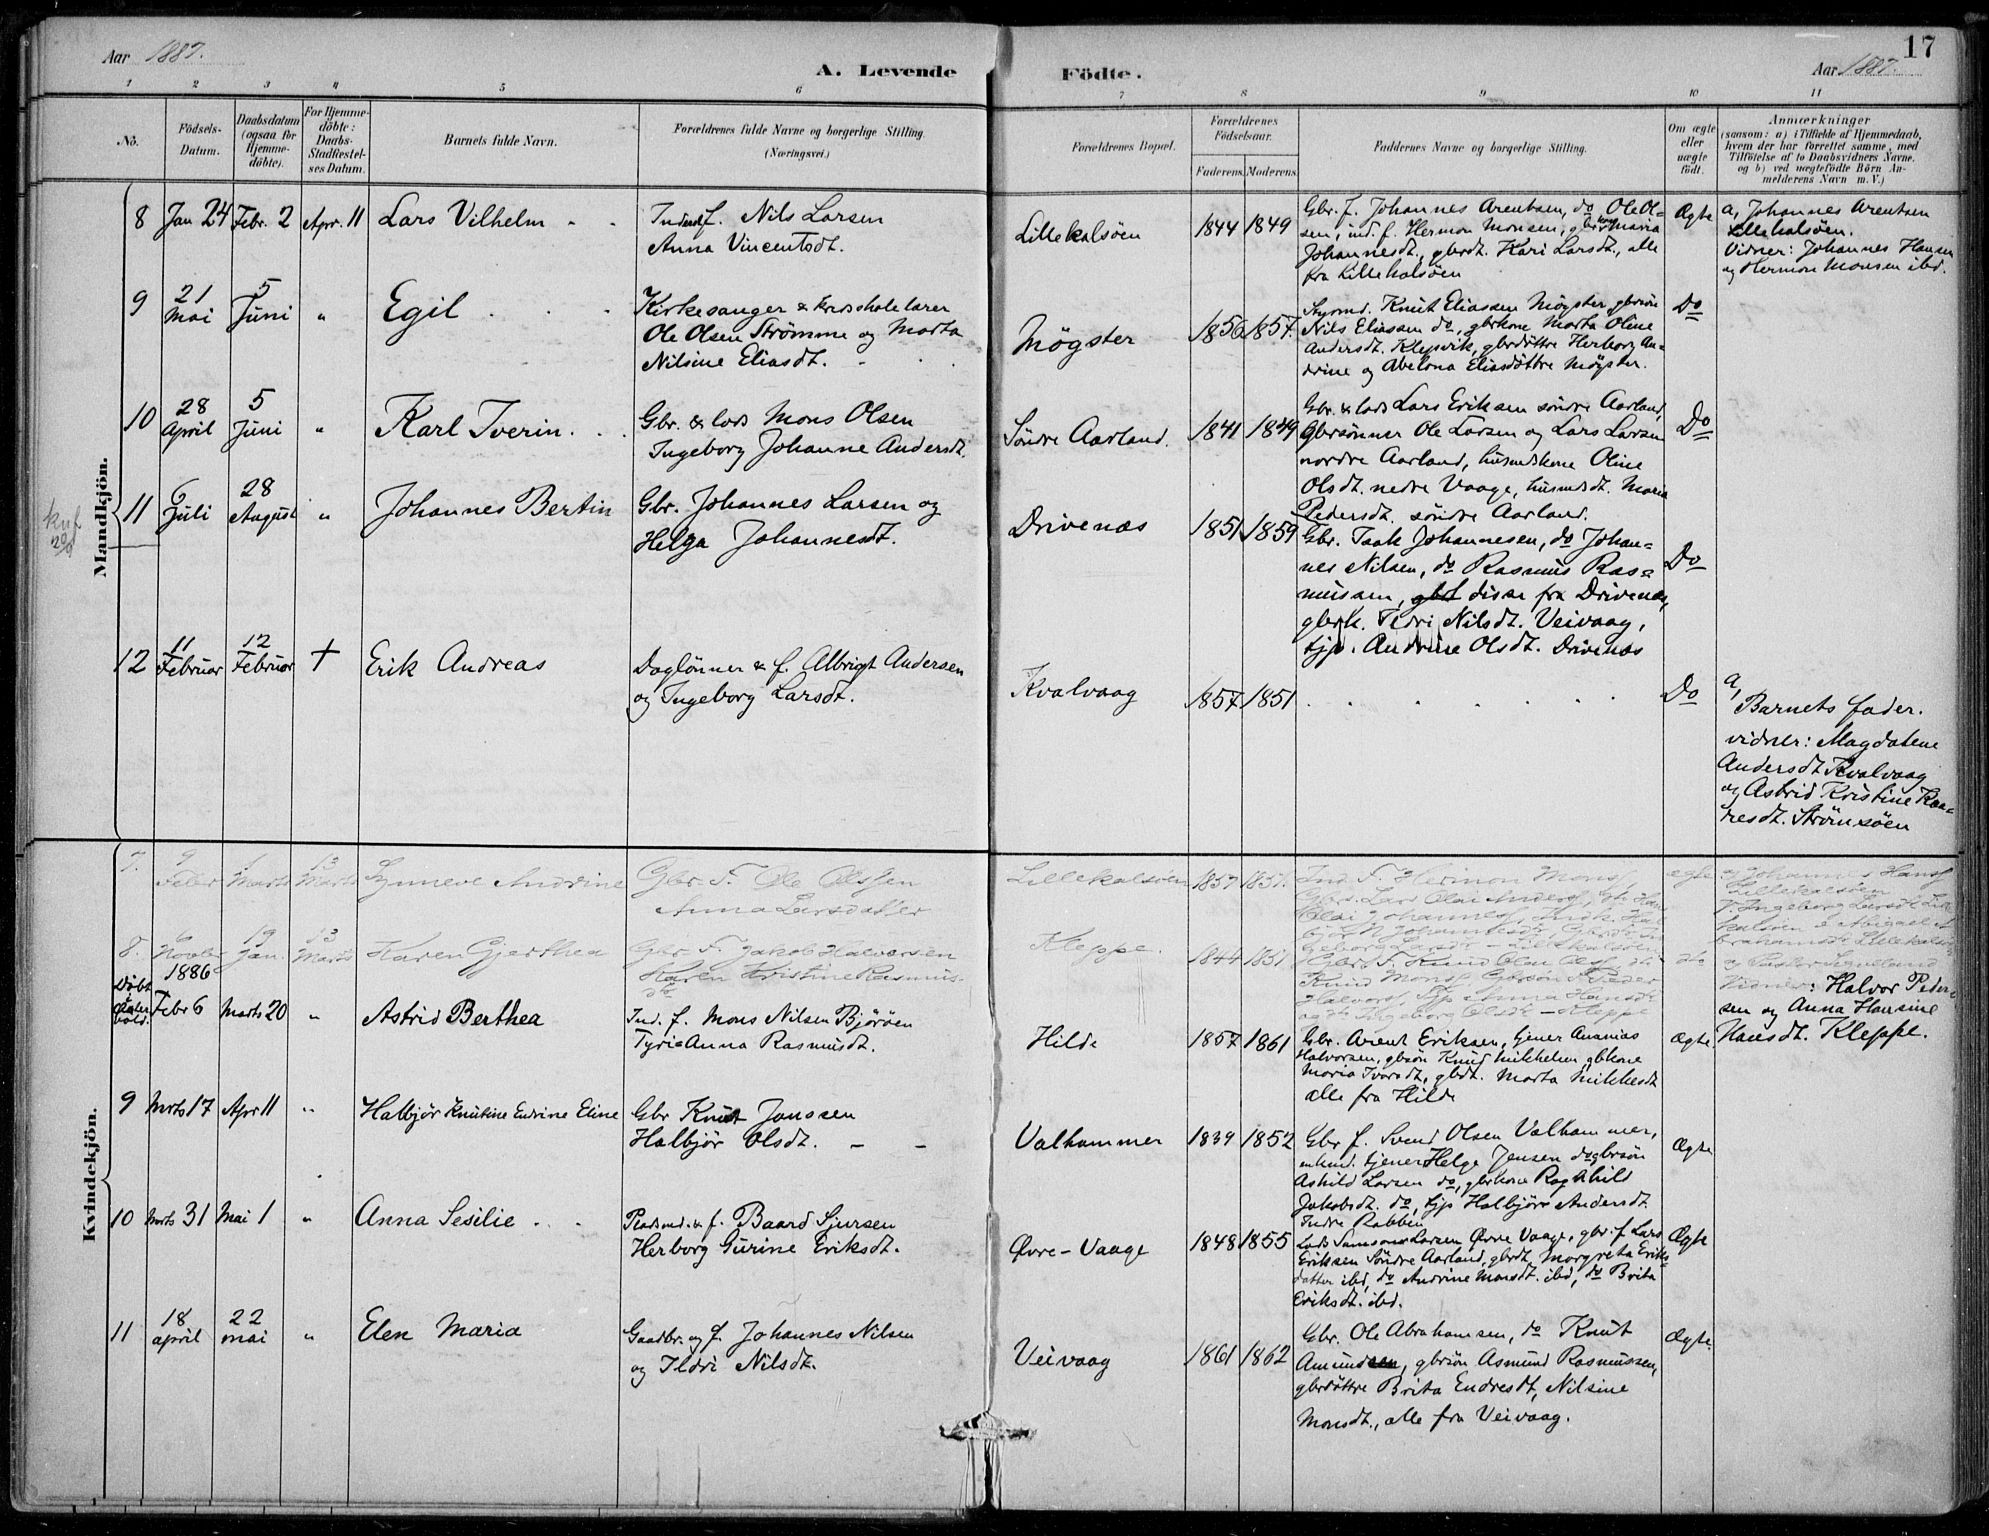 Aar 1887.
A. Levende Födte.
Aar 1887.
17
1 2 3 4 5 6 7 8 9 10 11
No.
Födsels-
Datum.
Daabsdatum
(ogsaa for
Hjemme-
döbte).
For Hjemme-
döbte:
Daabs-
Stadfæstel-
ses Datum.
Barnets fulde Navn.
Forældrenes fulde Navne og borgerlige Stilling
(Næringsvei.)
Forældrenes Bopæl.
Forældrenes
Födselsaar.
Faderens. Moderens.
Faddernes Navne og borgerlige Stilling.
Om ægte
eller
uægte
födt.
Anmærkninger
(saasom: a) i Tilfælde af Hjemmedaab,
hvem der har forrettet samme, med
Tilföielse af to Daabsvidners Navne.
og b) ved uægtefödte Börn An-
melderens Navn m. V.)
Mandkjön.
8 Jan 24 Febr. 2 Apr. 11 Lars Vilhelm
f. Nils Larsen
Anna Vincentsdt.
Lillekalsöen 1844 1849
Gbr. f. Johannes Arentsen, do Ole Ol=
sen, ind. f. Hermon Monsen, Maria
Johannesdt., gbrdt. Kari Larsdt., alle
fra Lillekalsöen
Ægte
a, Johannes Arentsen
Lillekalsöen.
Vidner: Johannes Hansen
og Hermon Monsen ibd.
9 21 Mai 5 Juni " Egil
Kirkesanger & lærer
Ole Olsen Strømme og Marta
Nilsine Eliasdt.
Mögster 1856 1857.
Styrmd. Knut Eliassen Mögster, gbrsön
Nils Eliassen do, gbrkone Marta Oline
Andersdt. Klepsvik, gbrdöttre Herborg An=
drine og Abelona Eliasdöttre Mögster.
Do
10 28 April 5 Juni " Karl Iverin.
Gbr. & lods Mons Olsen
Ingeborg Johanne Andersdt.
Söndre Aarland. 1841 1849
Gbr. & lods Lars Eriksen söndre Aarland,
Gbrsönner Ole Larsen og Lars Larsen
nordre Aarland, husmdskone Oline
Olsdt. nedre Vaage, husmdsdt. Maria
Pedersdt. söndre Aarland.
Do
11 6 Juli 28 August " Johannes Bertin
Gbr. Johannes Larsen og
Helga Johannesdt.
Drivenæs 1851 1859
Gbr. Isak Johannesen, do Johan=
nes Nilsen, do Rasmus Ras=
mussen, disse fra Drivenæs,
gbrk. Ildri Nilsdt. Veivaag,
tjp. Andrine Olsdt. Drivenæs
Do
12 11 Februar 12 Februar † Erik Andreas
Daglönner & f. Albrigt Andersen
og Ingeborg Larsdt.
Kvalvaag 1857 1851
Do
a,
Barnets fader.
vidner: Magdalene
Andersdt Kvalvaag
og Astrid Kristine Kaa=
resdt. Strömsöen
Kvindekjön.
7. 9 Febr 1 Marts 13 Marts Synneve Andrine
Gbr. F. Ole Olssen
Anna Larsdatter
Lillekalsöen 1857 1857.
Ind. F. Hermon Monss,
ægte
a, Johannes Hanss
Lillekalsöen
8. 6 Novbr 1886 19 Jan. 13 Marts Karen Gjerthea
Gbr. F. Jakob Halvorsen
Karen Kristine Rasmus-
Kleppe. 1844 1851
Vidner: Halvor Peder=
sen og Anna Hansine
Hansdt. Kleppe.
Döbt
Febr 6 Marts 20 " Astrid Berthea
Ind. f. Mons Nilsen Björöen
Tyri Anna Rasmusdt.
Hilde 1857 1861
Gbr. Arent Eriksen, tjener Ananias
Halvorsen, gbrsön Knud Mikkelsen, gbkone
Maria Ivarsdt, gbdt. Marta Mikkelsdt
alle fra Hilde
Ægte
9 Mrts 17 Apr 11 " Halbjör Knutine Endrine Eline
Gbr Knut Jonssen
Halbjör Olsdt.
Valhammer 1839 1852
Gbr f. Svend Olsen Valhammer,
tjener Helge Jensen do, gbrsön
Askild Larsen do, gbrkone Ragnhild
Jakobsdt. do, tjp Halbjör Andersdt.
Indre Rabben
Ægte
10 Mrts 31 Mai 1 " Anna Sesilie
Pladsmd. & f. Baard Sjursen
Herborg Gurine Eriksdt.
Øvre-Vaage 1848 1855
Lods Samson Larsen Øvre Vaage, gbr. f Lars
Eriksen Söndre Aarland, gbrdt, Margreta Eriks
datter ibd, do Andrine Monsdt. ibd, do Brita
Eriksdt. ibd.
Ægte
11 18 april 22 mai " Elen Maria
Gaadbr. og f. Johannes Nilsen
og Ildri Nilsdt.
Veivaag 1861 1862
Gbr. Ole Abrahamsen, do Knut
Amundsen, gbrsön Asmund Rasmussen,
gbrdöttre Brita Endresdt, Nilsine
Monsdt., alle fra Veivaag.
Ægte.